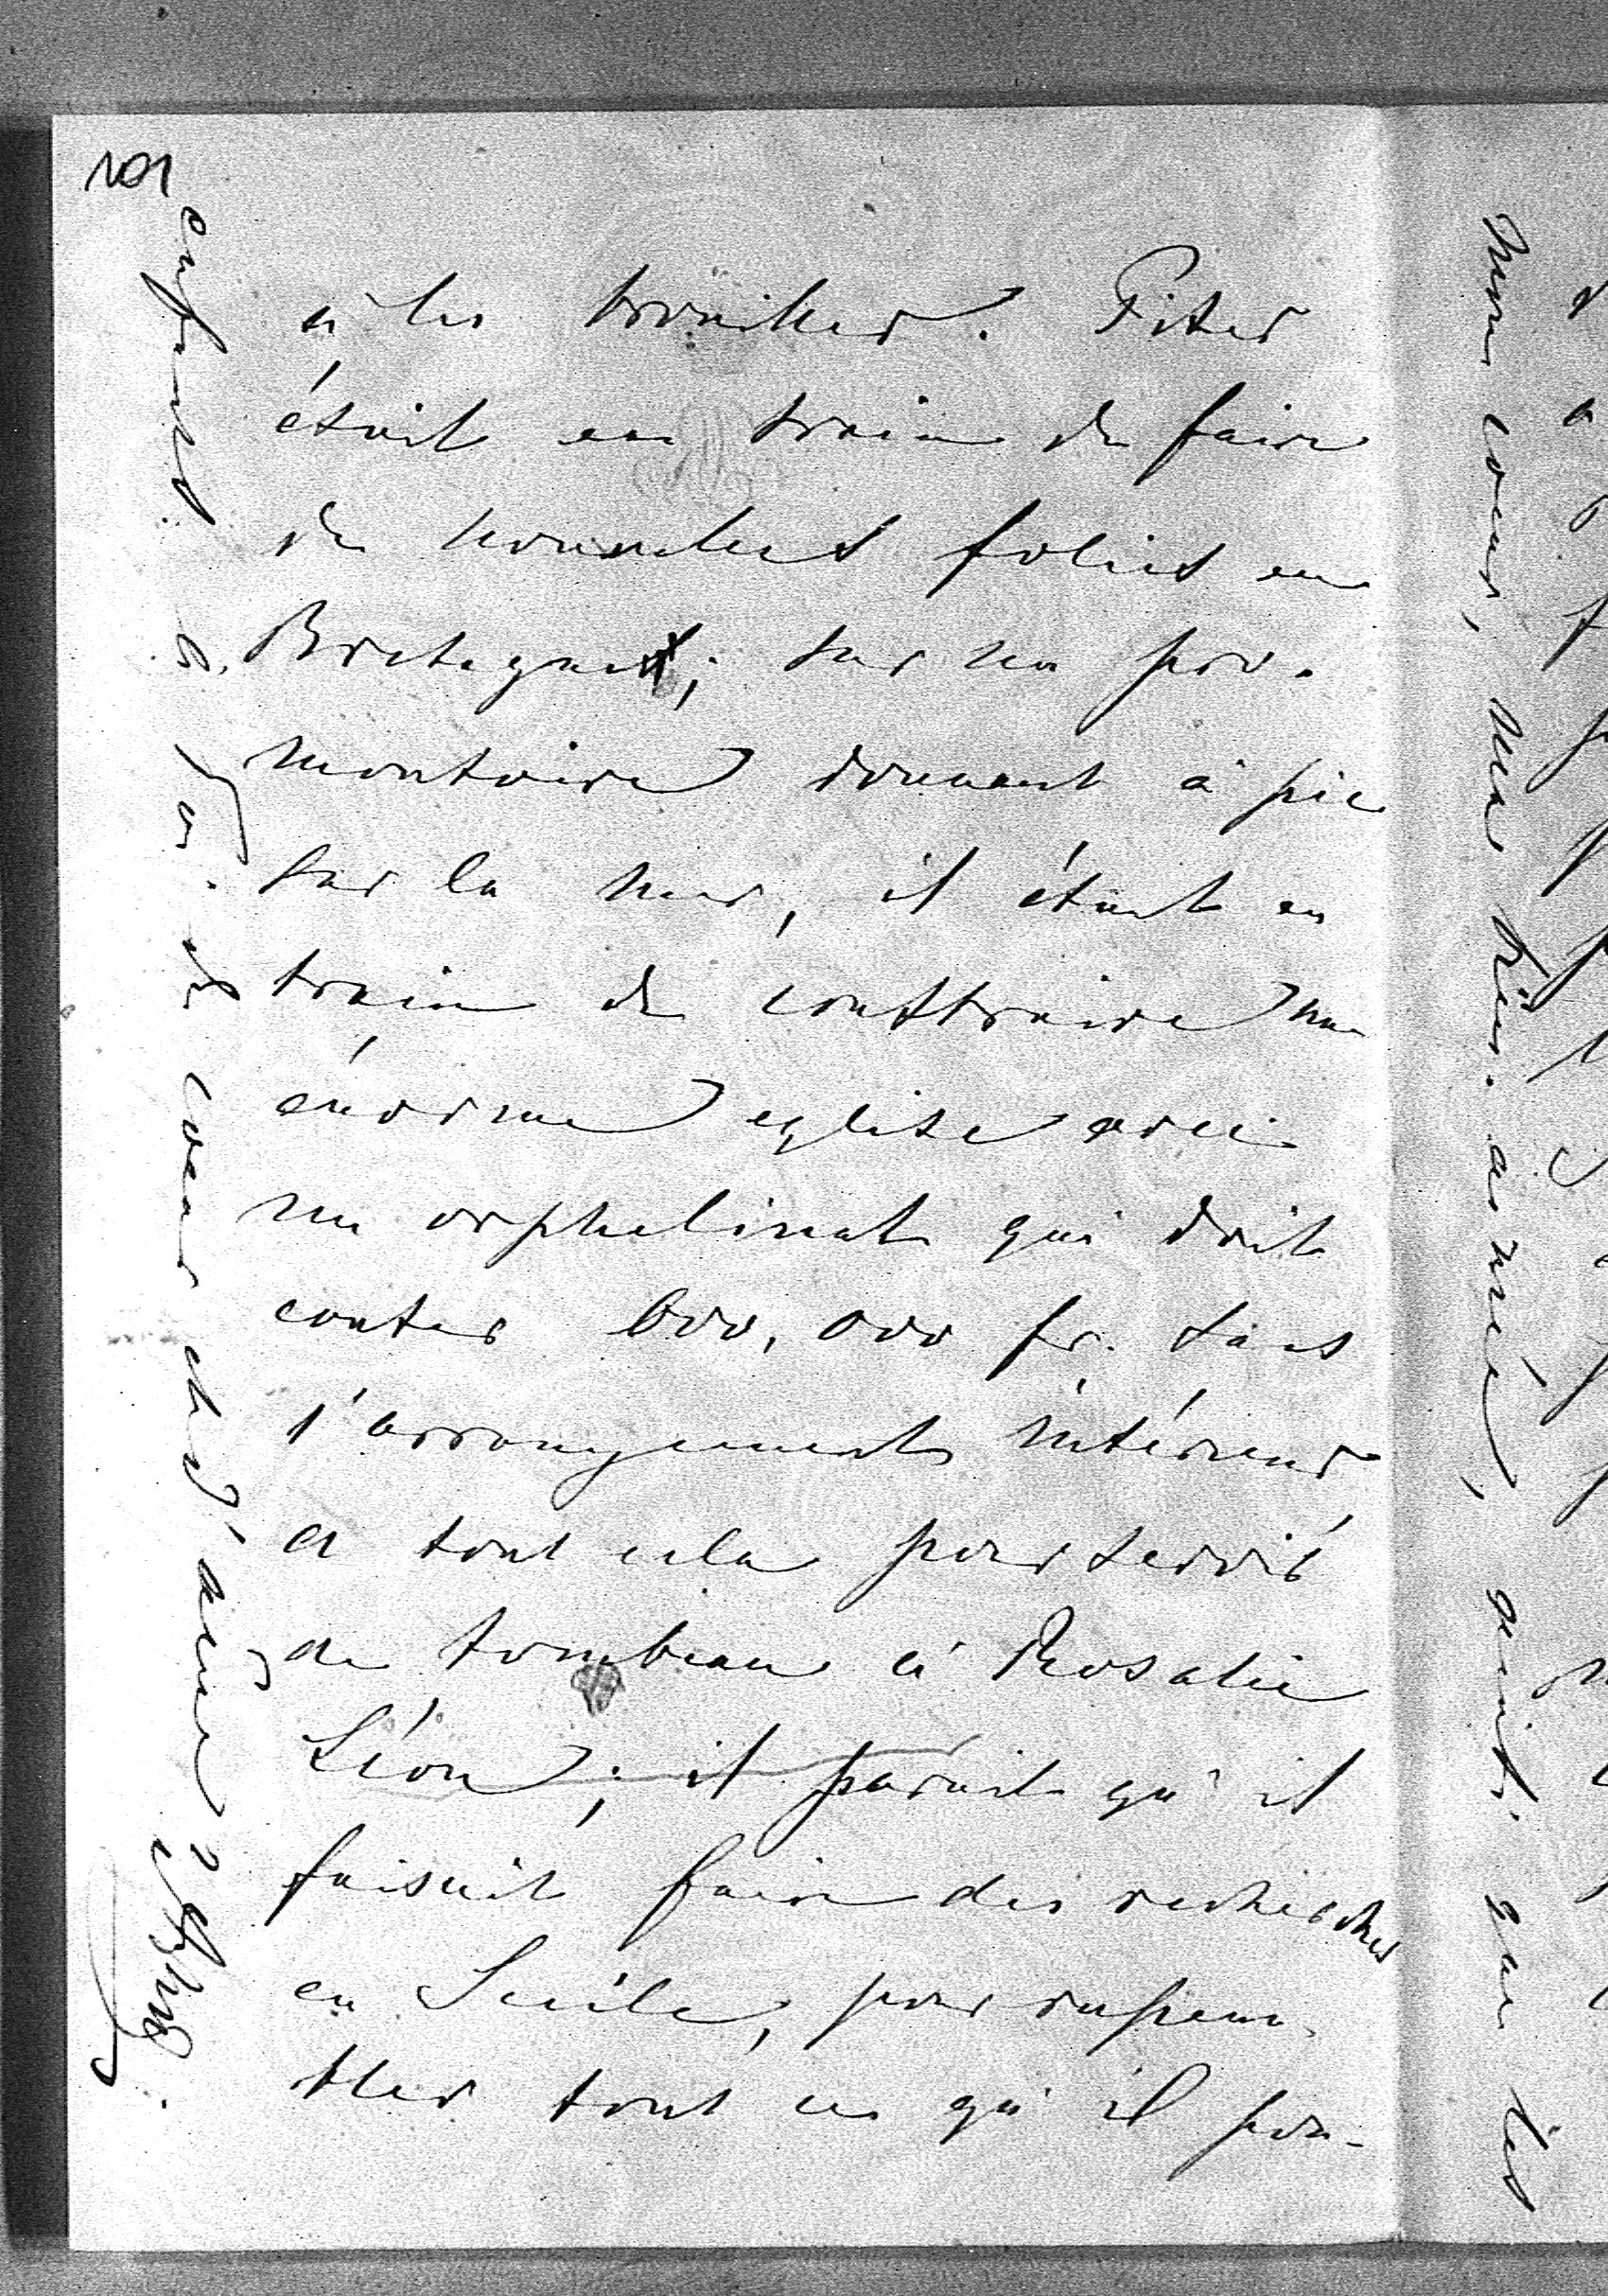 101
à les travailler. Piter
était en train de faire
de nouvelles folies en
Bretagne; sur un pro-
montoire donnant à pic
sur la mer, il était en
train de construire une
énorme eglise avec
un orphelinat qui doit
couter 600,000 fr. sans
l'arrangement intérieur
et tout cela pour servir
de tombeau à Rosalie
Léon; il parait qu'il
faisait faire des recherches
en Sicile, pour
tout ce qu'il pou-
enfants à toi de coeur cher aimé
Mon coeur, mon bien-aimé, que les